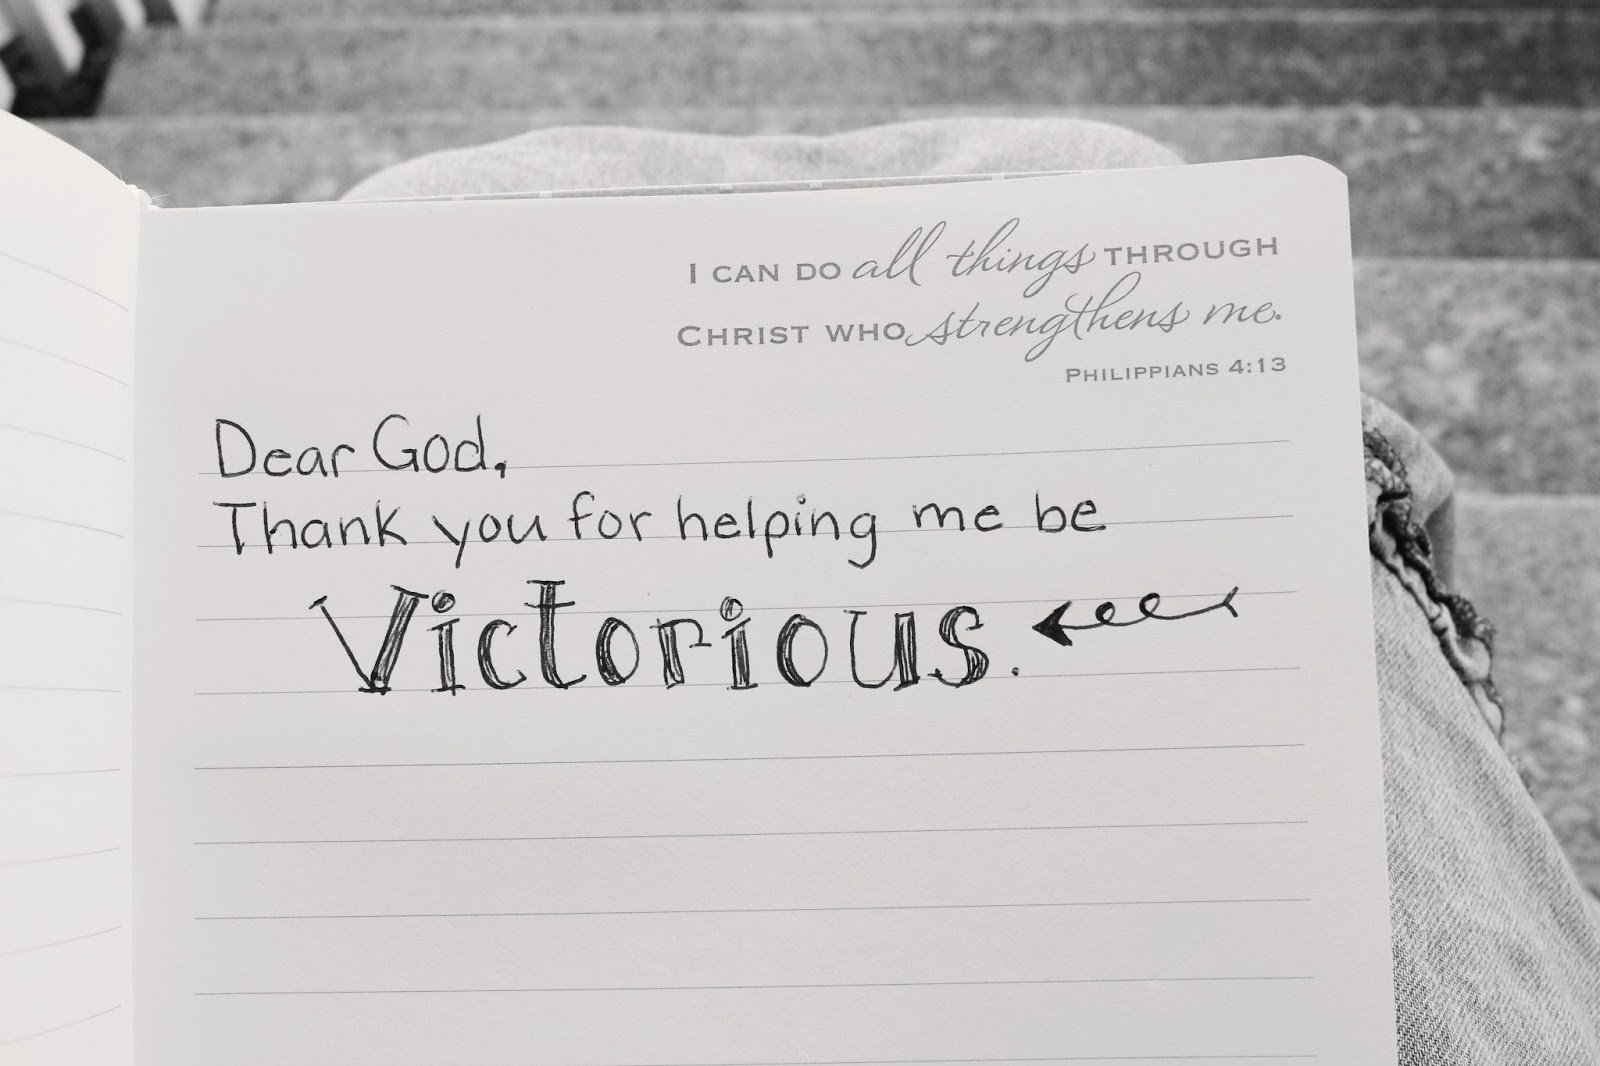 I CAN DO all things THROUGH
CHRIST WHO strengthens me.
PHILIPPIANS 4:13
Dear God,
Thank you for helping me be
Victorious.